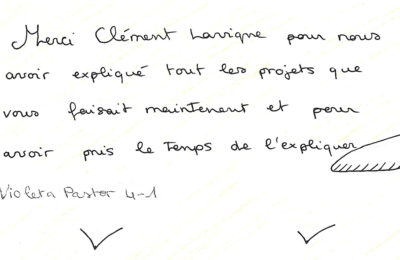 Merci Clément Lavigne pour nous
avoir expliqué tout les projets que
vous faisait maintenant et pour
avoir pris le Temps de l'expliquer
Violeta Pastor 4-1